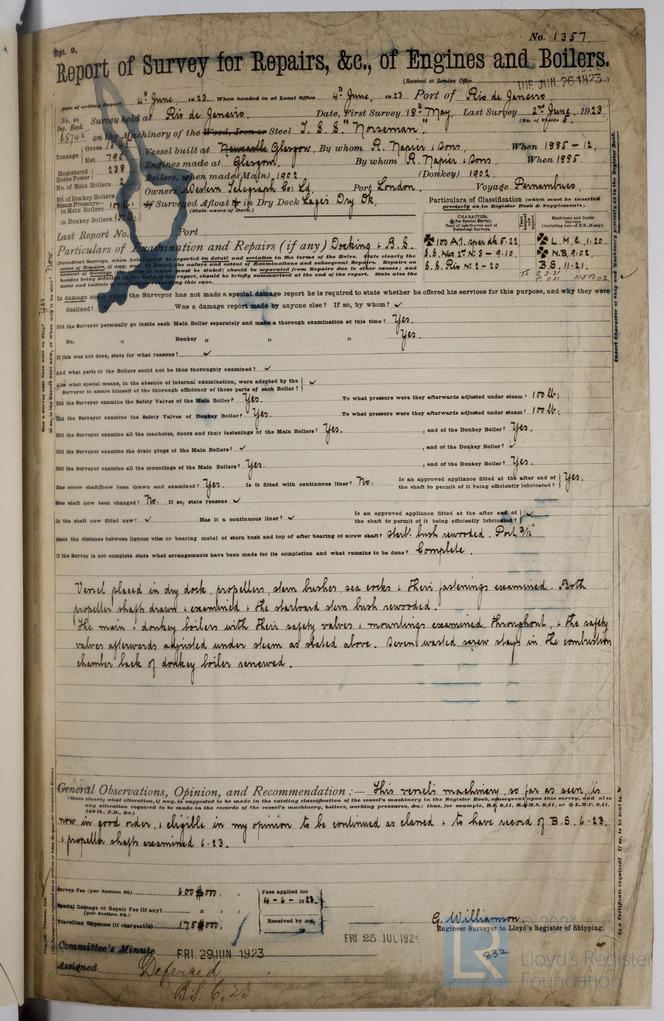 Rpt. 9.
No. 1357
Report of Survey for Repairs, &c., of Engines and Boilers.
(Received at London Office THU. JUN. 26 1923)
Date of writing Report 4th June 1923 When handed in at Local Office 4th June 1923 Port of Rio de Janeiro
No. in Reg. Book. Survey held at Rio de Janeiro. Date, First Survey 18th May, Last Survey 2nd June, 1923
(No. of Visits 5.
on the Machinery of the Wood, Iron or Steel T. S. S. "Norseman."
Tonnage Gross
Net 790
Vessel built at Newcastle Glasgow. By whom R. Napier & Sons. When 1885-12.
Registered Horse Power 238
Engines made at Glasgow. By whom R. Napier & Sons When 1885.
No. of Main Boilers 2
Boilers, when made (Main) 1902. (Donkey) 1902.
No. of Donkey Boilers
Owners Western Telegraph Co. Ld. Port London. Voyage Pernambuco.
Steam Pressure in Main Boilers
in Donkey Boilers
If Surveyed Afloat or in Dry Dock Lage's Dry Dk.
(State name of Dock.)
Particulars of Classification (which must be inserted precisely as in Register Book & Supplements).
Last Report No. Port
Particulars of Examination and Repairs (if any) Docking & B.S.
100 A.1. L.M.C. 11.20.
S.S. No 3 - 9.10. N.B. 9.02.
S.S. Rio No 2 - 20 B.S. 11.21.
In damage cases the Surveyor has not made a special damage report he is required to state whether he offered his services for this purpose, and why they were
declined? Was a damage report made by anyone else? If so, by whom? ✓
Did the Surveyor personally go inside each Main Boiler separately and make a thorough examination at this time? Yes.
Do. " Donkey " " " Yes.
If this was not done, state for what reasons? ✓
And what parts of the Boilers could not be thoroughly examined? ✓
Also what special means, in the absence of internal examination, were adopted by the
Surveyor to assure himself of the thorough efficiency of those parts of each Boiler? ✓
Did the Surveyor examine the Safety Valves of the Main Boiler? Yes. To what pressure were they afterwards adjusted under steam? 100 lb:
Did the Surveyor examine the Safety Valves of Donkey Boiler? Yes. To what pressure were they afterwards adjusted under steam? 100 lb:
Did the Surveyor examine all the manholes, doors and their fastenings of the Main Boilers? Yes. , and of the Donkey Boiler? Yes.
Did the Surveyor examine the drain plugs of the Main Boilers? ✓ , and of the Donkey Boiler? ✓
Did the Surveyor examine all the mountings of the Main Boilers? Yes. , and of the Donkey Boiler? Yes.
Has screw shaft now been drawn and examined? Yes. Is it fitted with continuous liner? No. Is an approved appliance fitted at the after end of the shaft to permit of it being efficiently lubricated? Yes.
Has shaft now been changed? No. If so, state reasons ✓
Is the shaft now fitted new? ✓ Has it a continuous liner? ✓ Is an approved appliance fitted at the after end of the shaft to permit of it being efficiently lubricated? ✓
State the distance between lignum vitæ or bearing metal of stern bush and top of after bearing of screw shaft? Starb. bush rewooded. Port 3/16"
If the Survey is not complete state what arrangements have been made for its completion and what remains to be done? Complete.
Vessel placed in dry dock, propellers, stern bushes, sea cocks & their fastenings examined. Both
propeller shafts drawn & examined & the starboard stern bush rewooded.
The main & donkey boilers with their safety valves & mountings examined throughout, & the safety
valves afterwards adjusted under steam as stated above. Seven wasted screw stays in the combustion
chamber back of donkey boiler renewed.
General Observations, Opinion, and Recommendation :— This vessel's machinery, so far as seen, is
(State clearly what alteration, if any, is suggested to be made in the existing classification of the vessel's machinery in the Register Book, consequent upon this survey, and also
any alteration required to be made in the records of the vessel's machinery, boilers, working pressures, &c.;
now in good order, & eligible in my opinion to be continued as classed & to have record of B.S. 6.23.
& propeller shafts examined 6.23.
Survey Fee (per Section 29) 600$000
Fees applied for
4-6-1923.
Special Damage or Repair Fee (if any)
(per Section 29.)
Travelling Expenses (if chargeable) 175$000
Received by me,
G. Williamson.
Engineer Surveyor to Lloyd's Register of Shipping.
Committee's Minute FRI. 29 JUN 1923
FRI 25 JUL 1924
Assigned Deferred
B.S. 6.23
832
© 2021
LR Lloyd's Register
Foundation